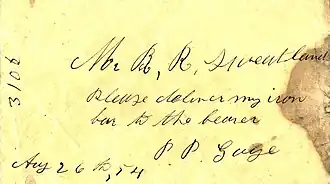 Mr B, R, Sweatland
Please deliver my iron
bar to the bearer
P. P. Gage
Aug 26th, 54
3106